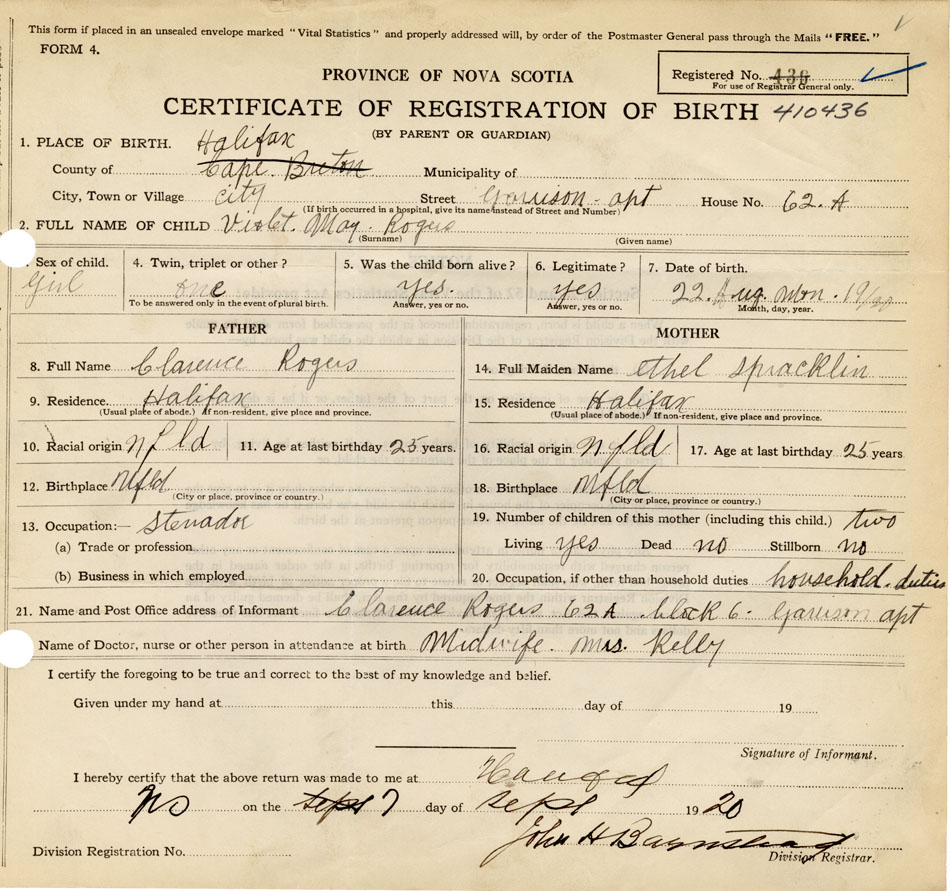 This form if placed in an unsealed envelope marked "Vital Statistics" and properly addressed will, by order of the Postmaster General pass through the Mails "FREE."
FORM 4.
Registered No. 430
For use of Registrar General only.
PROVINCE OF NOVA SCOTIA
CERTIFICATE OF REGISTRATION OF BIRTH 410436
(BY PARENT OR GUARDIAN)
1. PLACE OF BIRTH. Halifax
County of Cape Breton Municipality of
City, Town or Village city Street Garrison apt House No. 62. A
(If birth occurred in a hospital, give its name instead of Street and Number)
2. FULL NAME OF CHILD Violet. May. Rogers
(Surname) (Given name)
Sex of child. 4. Twin, triplet or other ? 5. Was the child born alive ? 6. Legitimate ? 7. Date of birth.
Girl one yes. yes 22. Aug. mon.
To be answered only in the event of plural birth. Answer, yes or no. Answer, yes or no. Month, day, year.
FATHER MOTHER
8. Full Name Clarence Rogers 14. Full Maiden Name ethel Spracklin
9. Residence. Halifax 15. Residence Halifax
(Usual place of abode.) If non-resident, give place and province. (Usual place of abode.) If non-resident, give place and province.
10. Racial origin nfld 11. Age at last birthday 25 years. 16. Racial origin nfld 17. Age at last birthday 25 years
12. Birthplace Nfld 18. Birthplace Nfld
(City or place, province or country.) (City or place, province or country.)
13. Occupation:— Stevador 19. Number of children of this mother (including this child.) two
(a) Trade or profession Living yes Dead no Stillborn no
(b) Business in which employed 20. Occupation, if other than household duties household. duties
21. Name and Post Office address of Informant Clarence Rogers 62A block 6- Garrison apt
Name of Doctor, nurse or other person in attendance at birth Midwife. Mrs. Kelly
I certify the foregoing to be true and correct to the best of my knowledge and belief.
Given under my hand at this day of 19
Signature of Informant.
I hereby certify that the above return was made to me at
NS on the Sept 7 day of Sept 1920
John H Barnstead
Division Registration No. Division Registrar.